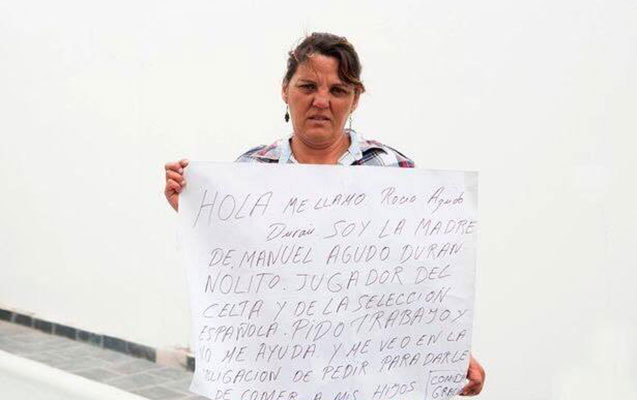 HOLA ME LLAMO Rocio Agudo
Duran SOY LA MADRE
DE. MANUEL AGUDO DURAN
NOLITO. JUGADOR DEL
CELTA Y DE LA SELECCION
ESPAÑOLA. PIDO TRABAJO, Y
NO ME AYUDA Y ME VEO EN LA
OBLIGACION DE PEDIR PARA DARLE
DE COMER A MIS HIJOS COMIDA